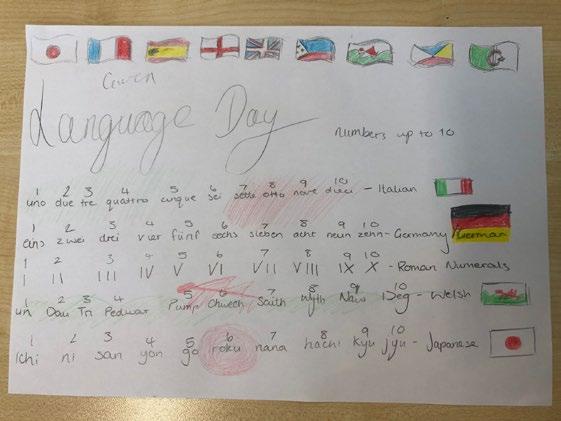 Gwen
Language Day
Numbers up to 10
1 2 3 4 5 6 7 8 9 10
uno due tre quattro cinque sei sette otto nove dieci - Italian
1 2 3 4 5 6 7 8 9 10
eins zwei drei vier fünf sechs sieben acht neun zehn - Germany German
1 2 3 4 5 6 7 8 9 10
I II III IV V VI VII VIII IX X - Roman Numerals
1 2 3 4 5 6 7 8 9 10
un Dau Tri Pedwar Pump Chwech Saith Wyth Naw Deg - Welsh
1 2 3 4 5 6 7 8 9 10
Ichi ni san yon go roku nana hachi kyu jyu - Japanese